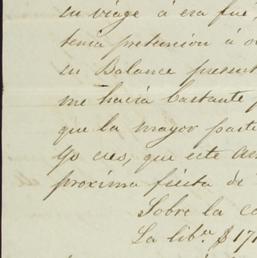 su viage á esa fué,
tenia pretension á o
su Balance present
me hacia bastante f
que la mayor parte
Yo creo, que este am
proxima fiesta de
Sobre la co
La lib.ª $ 171